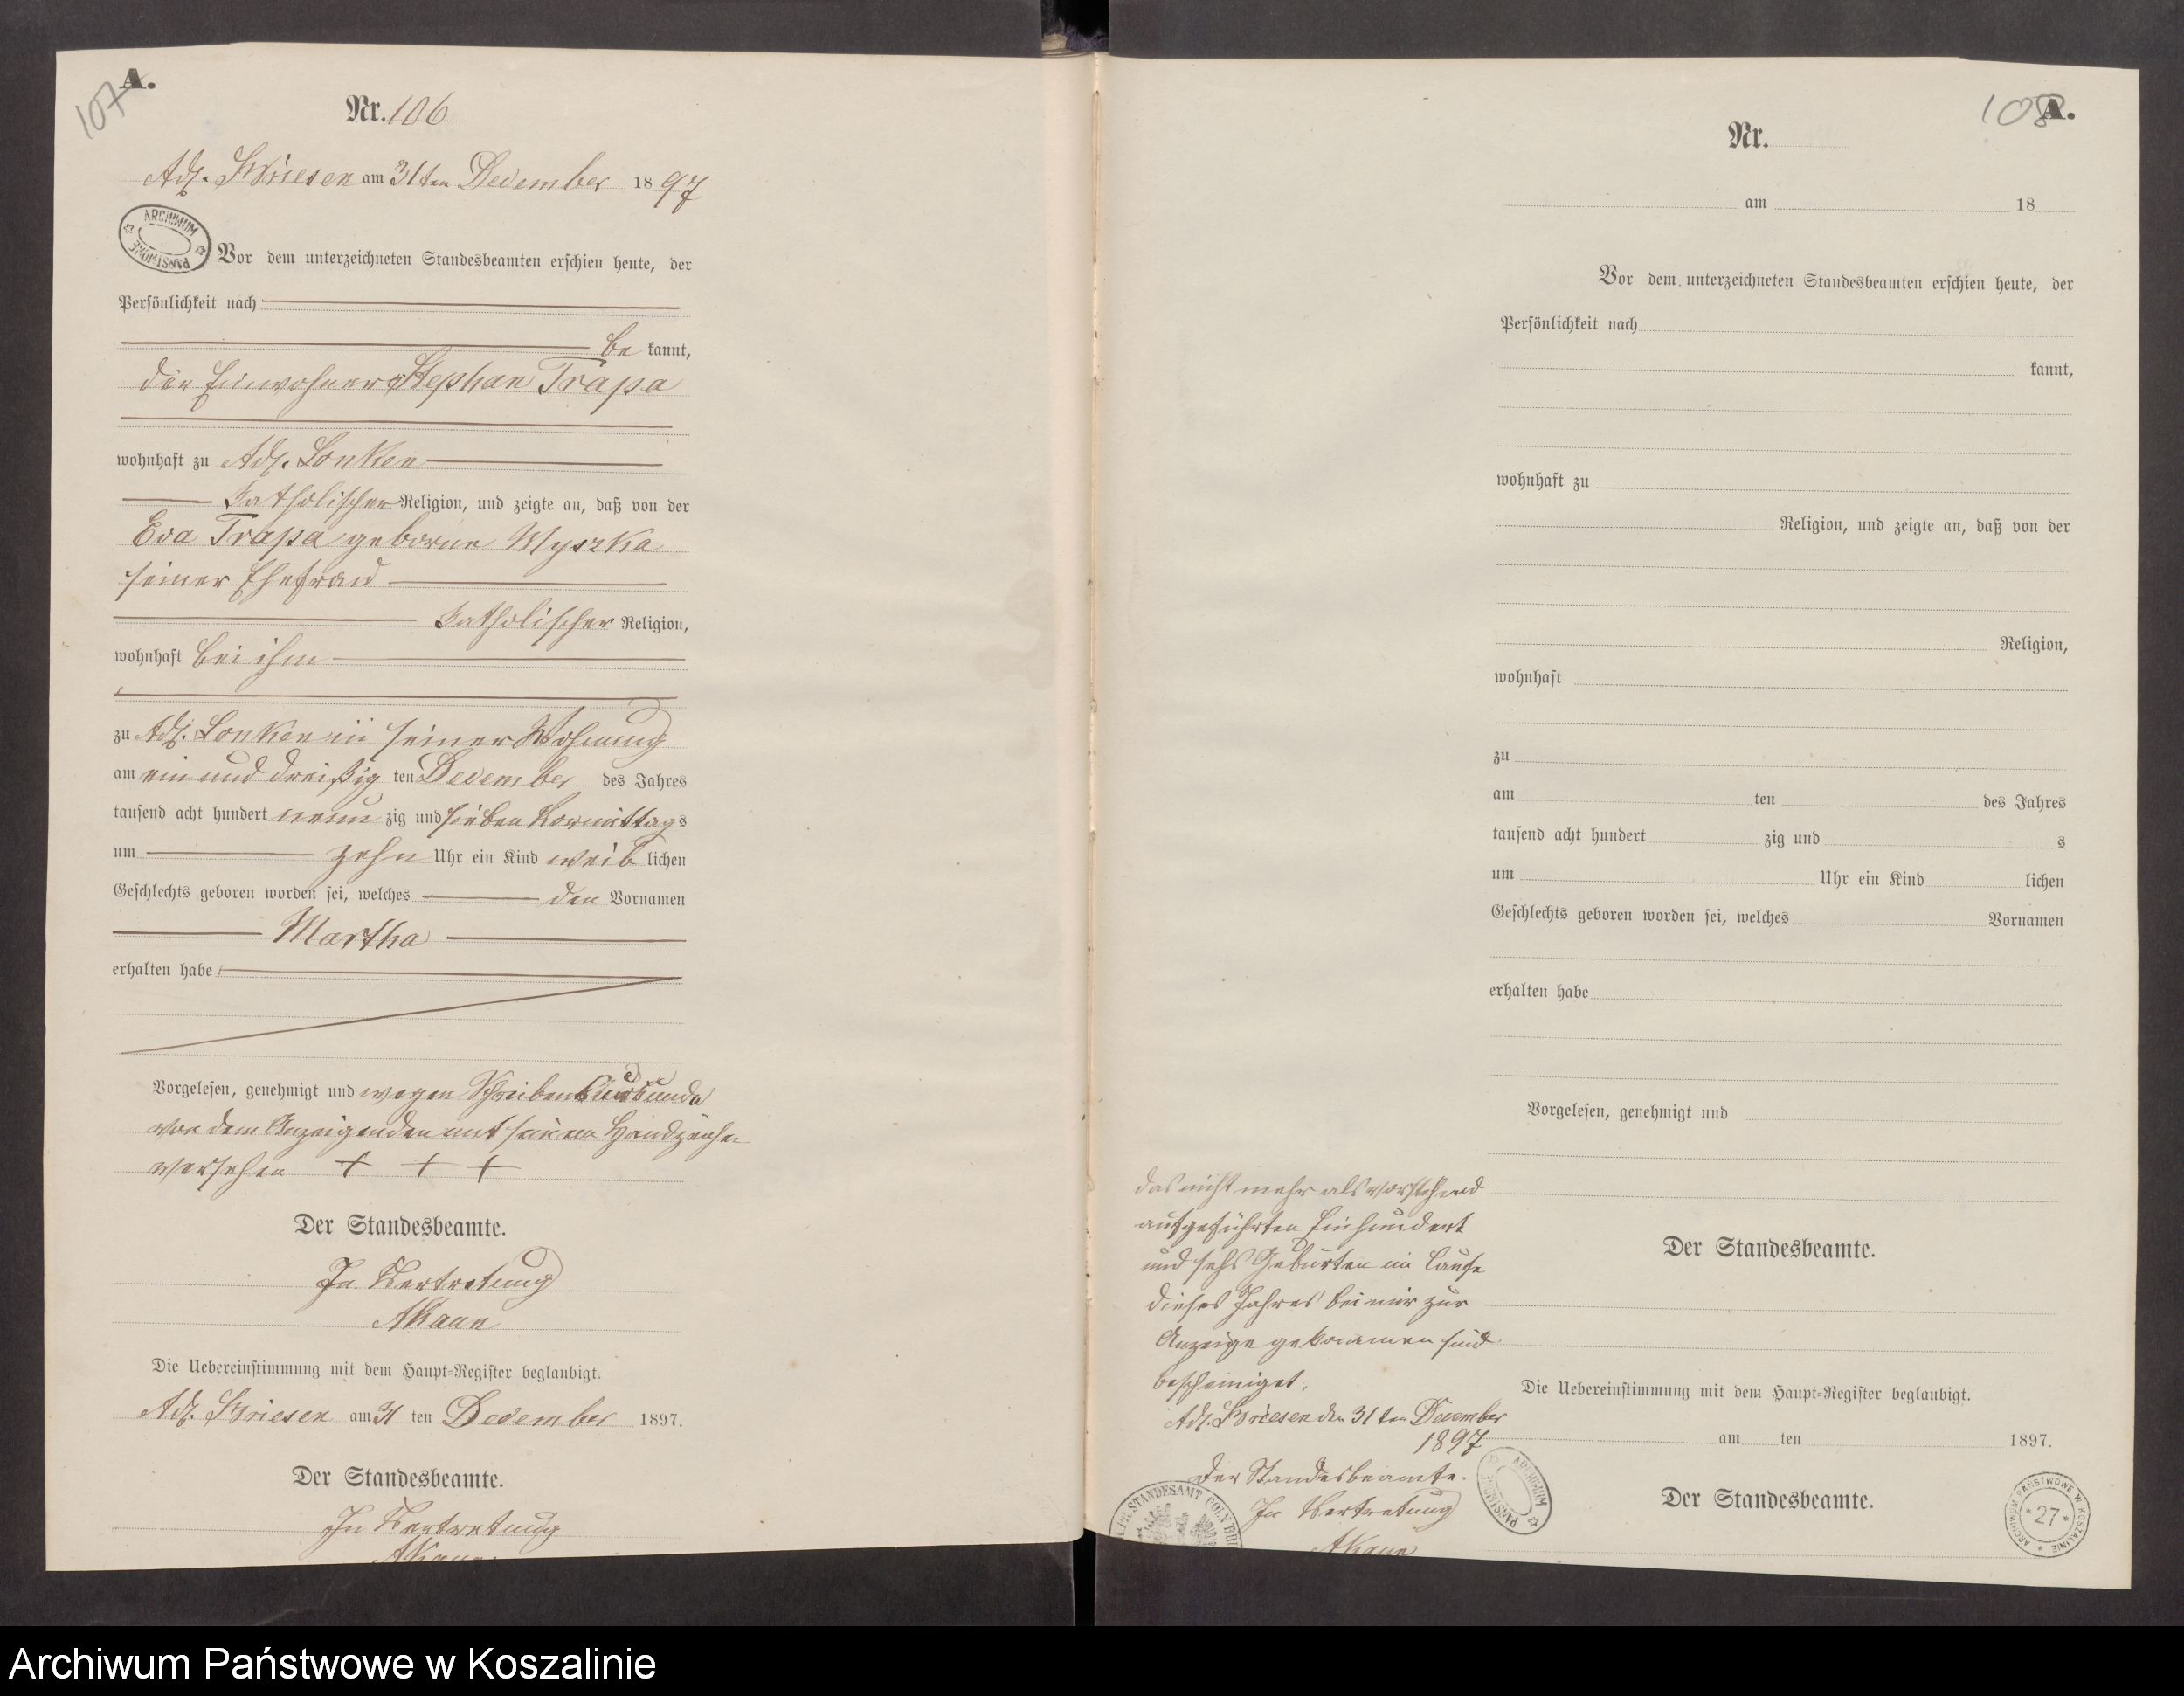 107
A.
Nr. 106
Adl. Briesen am 31ten December 1897
ARCHIWUM PAŃSTWOWE
Vor dem unterzeichneten Standesbeamten erschien heute, der
Persönlichkeit nach
be kannt,
der Einwohner Stephan Trapa
wohnhaft zu Adl. Lonken
katholischer Religion, und zeigte an, daß von der
Eva Trapa geborne Myszka
seiner Ehefrau
katholischer Religion,
wohnhaft bei ihm
zu Adl. Lonken in seiner Wohnung
am ein und dreißig ten December des Jahres
tausend acht hundert neun zig und sieben Vormittags
um zehn Uhr ein Kind weib lichen
Geschlechts geboren worden sei, welches den Vornamen
Martha
erhalten habe.
Vorgelesen, genehmigt und wegen Schreibens
von dem Anzeigenden mit seinem Handzeichen
versehen + + +
Der Standesbeamte.
In Vertretung
Die Uebereinstimmung mit dem Haupt-Register beglaubigt.
Adl. Briesen am 31 ten December 1897.
Der Standesbeamte.
In Vertretung
108
A.
Nr.
am 18
Vor dem unterzeichneten Standesbeamten erschien heute, der
Persönlichkeit nach
kannt,
wohnhaft zu
Religion, und zeigte an, daß von der
Religion,
wohnhaft
zu
am ten des Jahres
tausend acht hundert zig und s
um Uhr ein Kind lichen
Geschlechts geboren worden sei, welches Vornamen
erhalten habe
Vorgelesen, genehmigt und
Der Standesbeamte.
Die Uebereinstimmung mit dem Haupt-Register beglaubigt.
am ten 1897.
Der Standesbeamte.
das nicht mehr als vorstehend
aufgeführten Einhundert
und sechs Geburten im Laufe
dieses Jahres bei mir zur
Anzeige gekommen sind
bescheiniget.
Adl. Briesen den 31ten December
1897
Der Standesbeamte.
In Vertretung
STANDESAMT
ARCHIWUM PAŃSTWOWE
ARCHIWUM PAŃSTWOWE W KOSZALINIE * 27 *
Archiwum Państwowe w Koszalinie